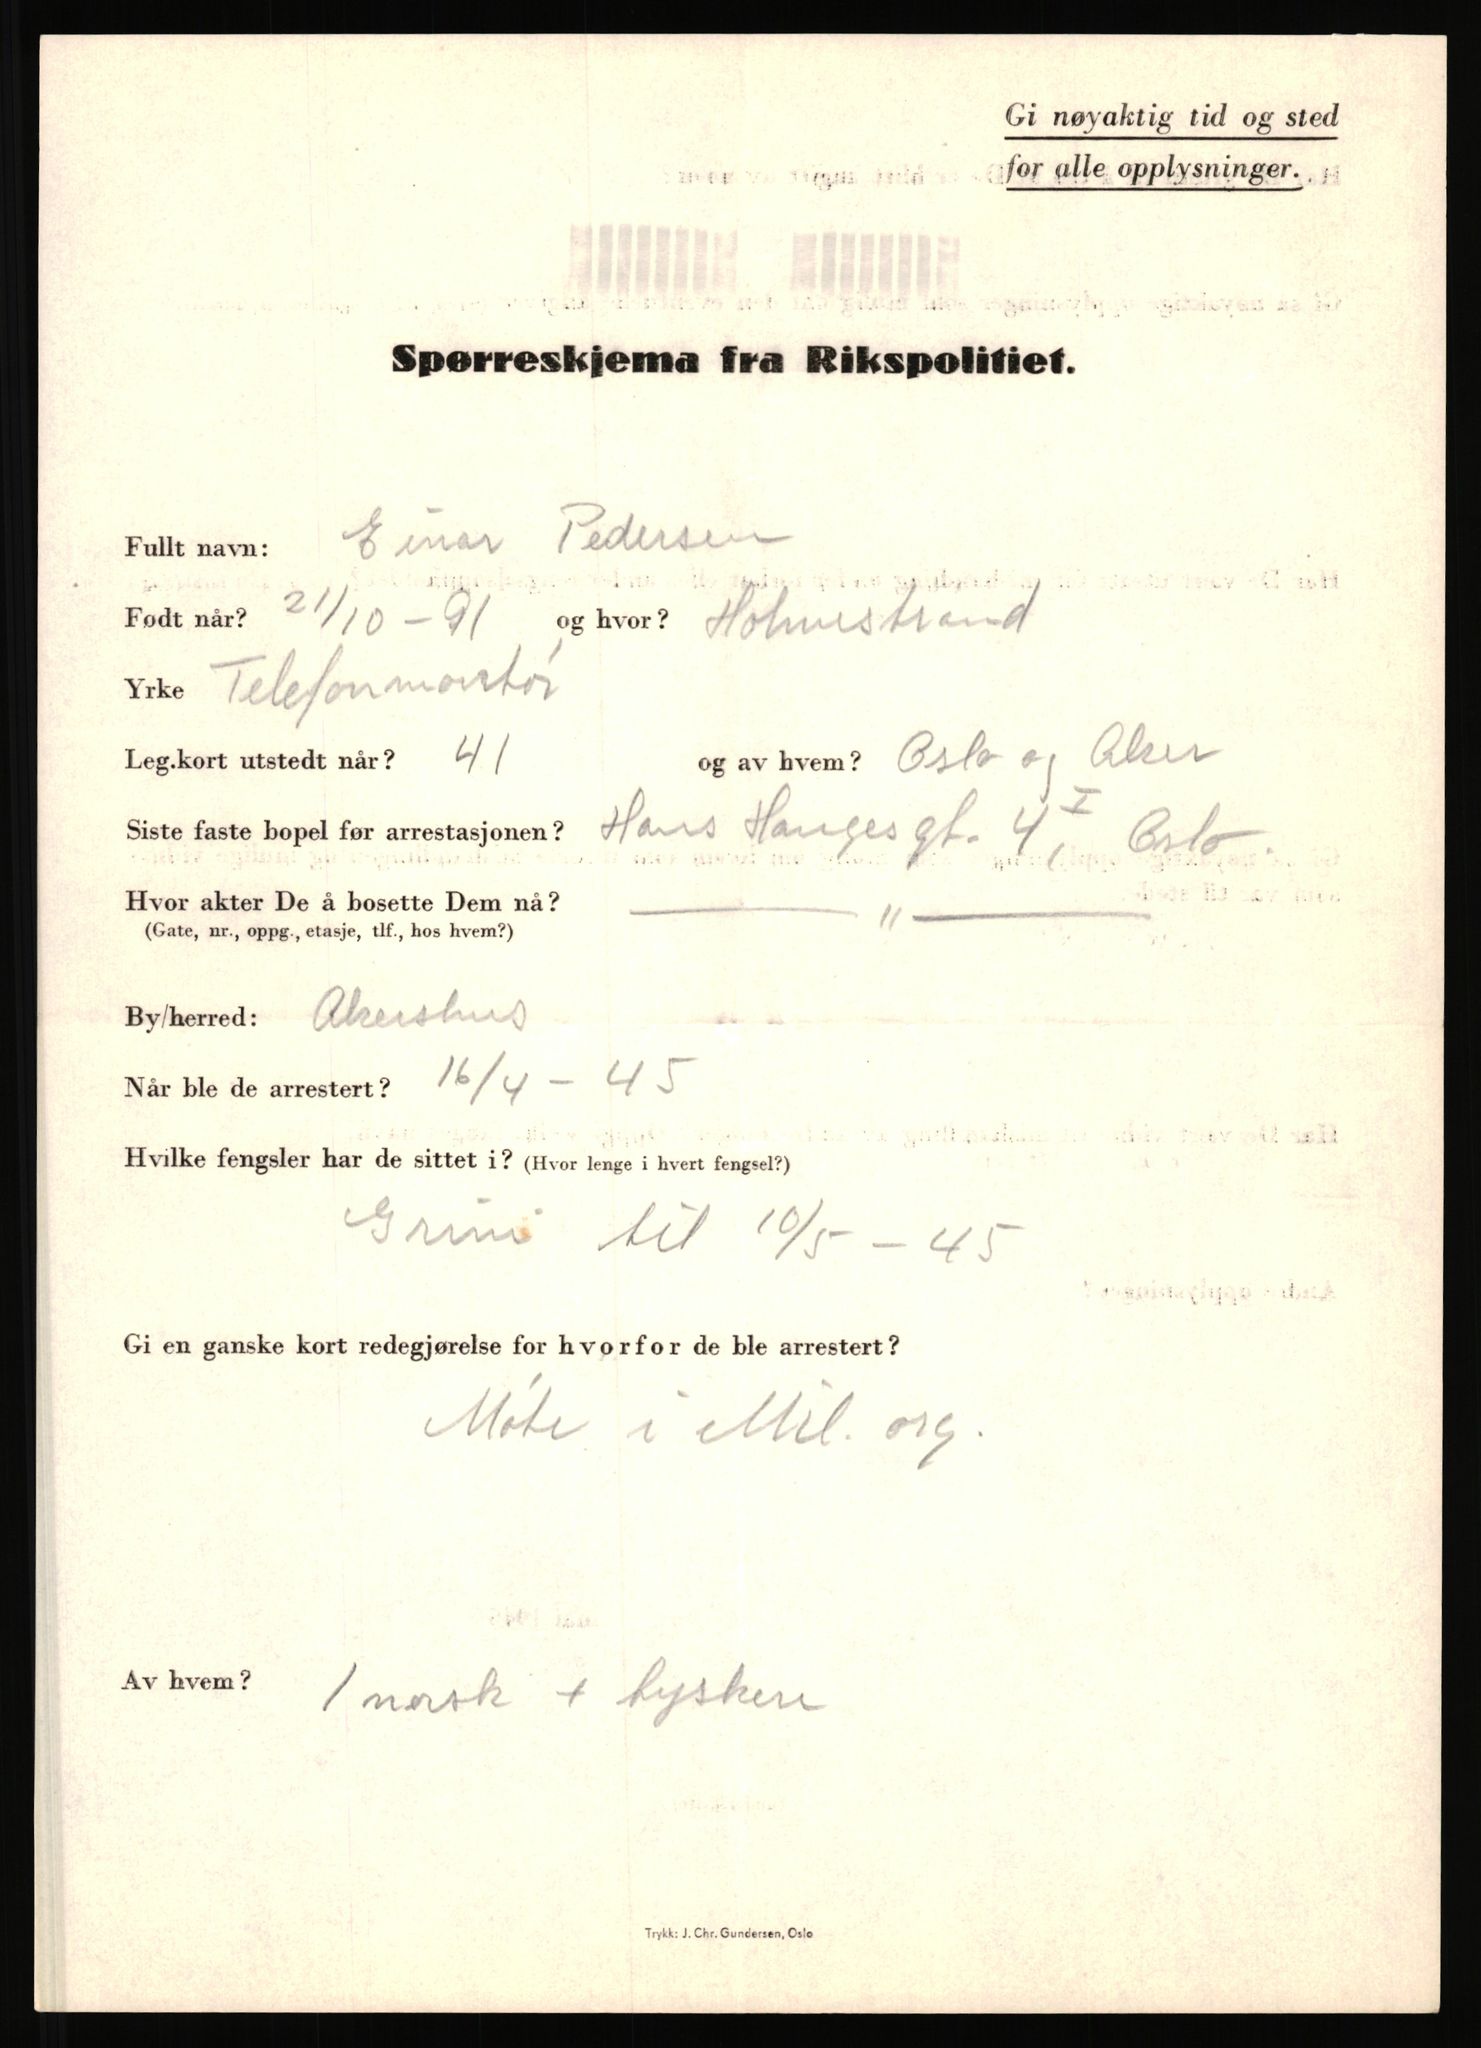 Gi nøyaktig tid og sted
for alle opplysninger.
Spørreskjema fra Rikspolitiet.
Fullt navn: Einar Pedersen
Født når? 21/10 - 91 og hvor? Holmestrand
Yrke Telefonmontør
Leg.kort utstedt når? 41 og av hvem? Oslo og Aker
Siste faste bopel før arrestasjonen? Hans Hauges gt. 4 I, Oslo.
Hvor akter De å bosette Dem nå? — " —
(Gate, nr., oppg., etasje, tlf., hos hvem?)
By/herred: Akershus
Når ble de arrestert? 16/4 - 45
Hvilke fengsler har de sittet i? (Hvor lenge i hvert fengsel?)
Grini til 10/5 - 45
Gi en ganske kort redegjørelse for hvorfor de ble arrestert?
Møte i Mil. org.
Av hvem? 1 norsk + tyskere
Trykk: J. Chr. Gundersen, Oslo